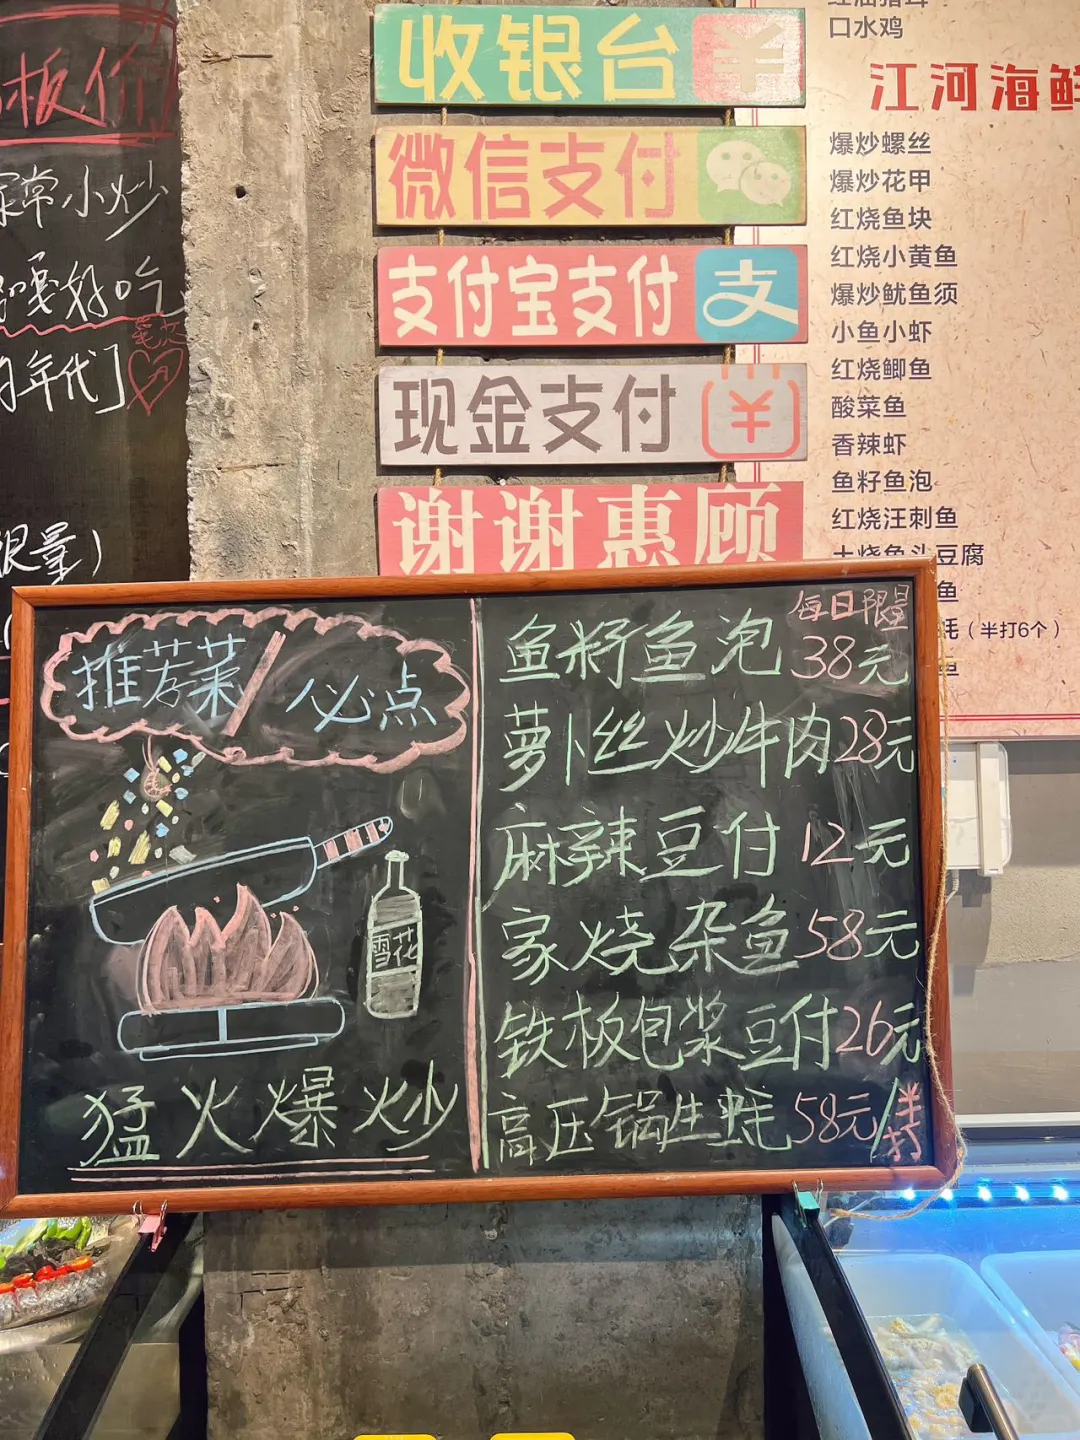 板价
家常小炒
要好吃
年代]
笔芯
限量)
收银台 ¥
微信支付
支付宝支付 支
现金支付 ¥
谢谢惠顾
口水鸡
江河海鲜
爆炒螺丝
爆炒花甲
红烧鱼块
红烧小黄鱼
爆炒鱿鱼须
小鱼小虾
红烧鲫鱼
酸菜鱼
香辣虾
鱼籽鱼泡
红烧汪刺鱼
土烧鱼头豆腐
鱼
蚝(半打6个)
推荐菜/必点
雪花
猛火爆炒
每日限量
鱼籽鱼泡 38元
萝卜丝炒牛肉 28元
麻辣豆付 12元
家烧杂鱼 58元
铁板包浆豆付 26元
高压锅生蚝 58元/半打